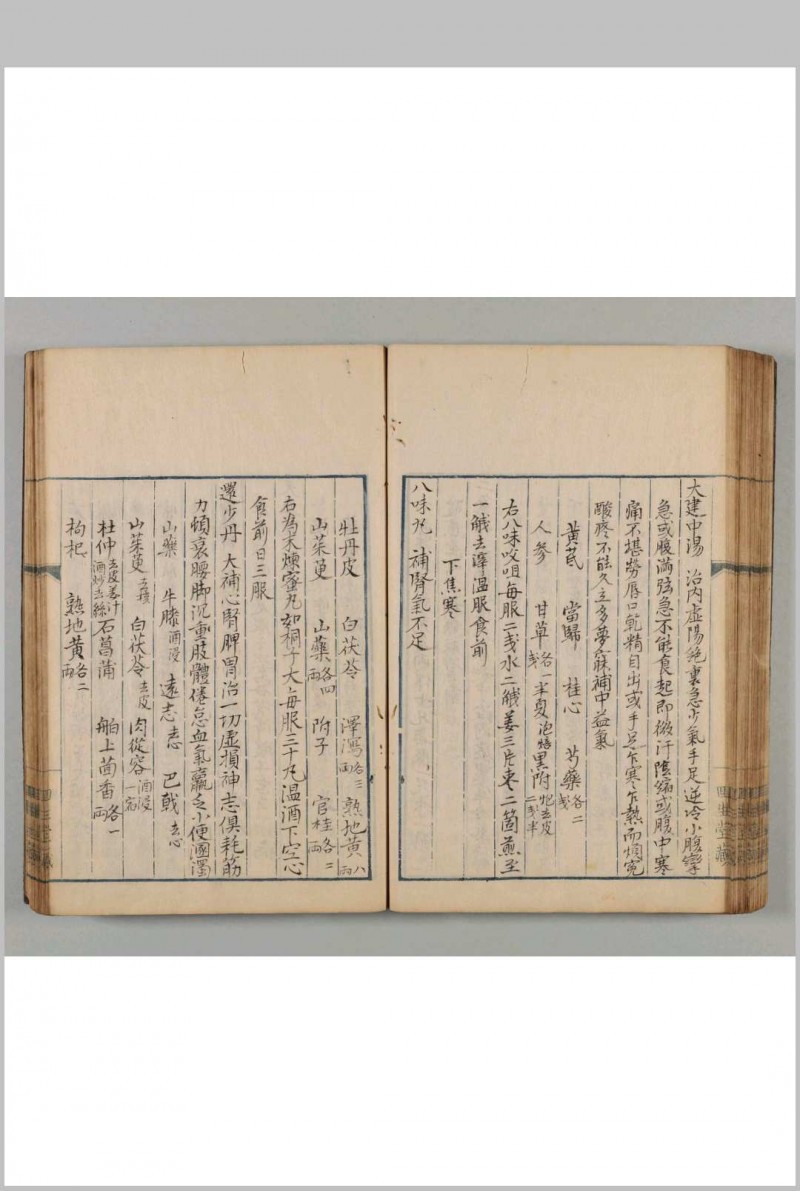 大建中湯　治內虛陽絕裏急少氣手足逆冷小腹攣
急或腹滿弦急不能食起即微汗陰縮或腹中寒
痛不堪勞唇口乾精自出或手足乍寒乍熱而煩寃
酸疼不能久立多夢寐補中益氣
黃芪　當歸　桂心　芍藥各二戔
人參　甘草各一戔　半夏泡焙　黑附炮去皮二戔半
右八味咬咀每服二戔水二觥姜三片枣二箇煎至
一觥去滓溫服食前
下焦寒
八味丸　補腎氣不足
牡丹皮　白茯苓　澤瀉各三兩　熟地黃八兩
山茱萸　山藥各四兩　附子　官桂各二兩
右為末煉蜜丸如桐子大每服三十丸温酒下空心
食前日三服
還少丹　大補心腎脾胃治一切虛損神志俱耗筋
力頓衰腰脚沉重肢體倦怠血氣羸乏小便溷濁
山藥　牛膝酒浸　遠志去心　巴戟去心
山茱萸去核　白茯苓去皮　肉從容酒浸一宿
杜仲去皮姜汁酒炒去絲　石菖蒲　舶上茴香各一兩
枸杞　熟地黃各二兩